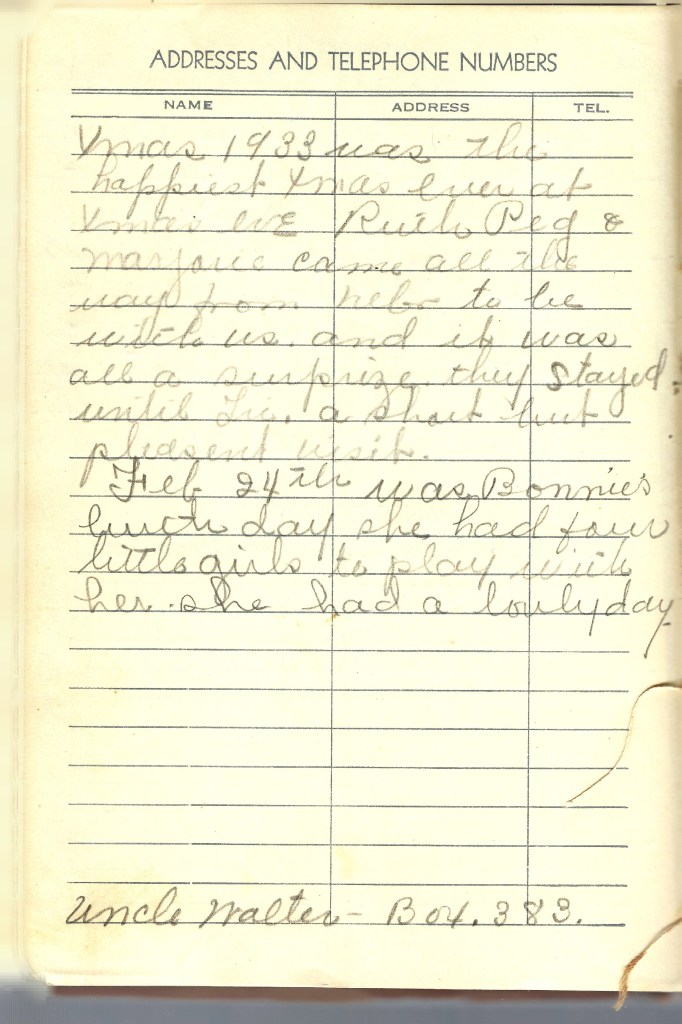 ADDRESSES AND TELEPHONE NUMBERS
NAME ADDRESS TEL.
Xmas 1933 was the
happiest Xmas ever at
Xmas eve Ruth Peg &
Marjorie came all the
way from Nebr to be
with us. and it was
all a surprize. they stayed
until Tu. a short but
pleasent visit.
Feb 24th was Bonnies
birth day she had four
little girls to play with
her. she had a lovly day
Uncle Walter - Box. 383.